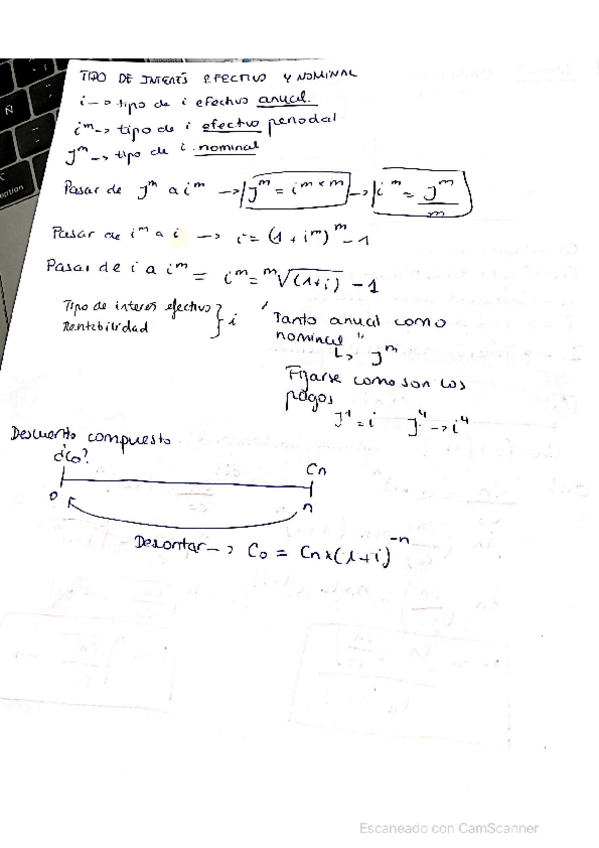 TIPO DE INTERÉS EFECTIVO Y NOMINAL
i → tipo de i efectivo anual.
i^m → tipo de i efectivo periodal
J^m → tipo de i nominal
Pasar de J^m a i^m → J^m = i^m × m → i^m = J^m / m
Pasar de i^m a i → i = (1 + i^m)^m - 1
Pasar de i a i^m = i^m = ^m√(1+i) - 1
Tipo de interes efectivo
Rentabilidad } i
"Tanto anual como
nominal"
↳ J^m
Fijarse como son los
pagos
J^1 = i J^4 → i^4
Descuento compuesto
¿Co?
Cn
0
n
Descontar → C0 = Cn × (1+i)^-n
Ñ
option
Escaneado con CamScanner